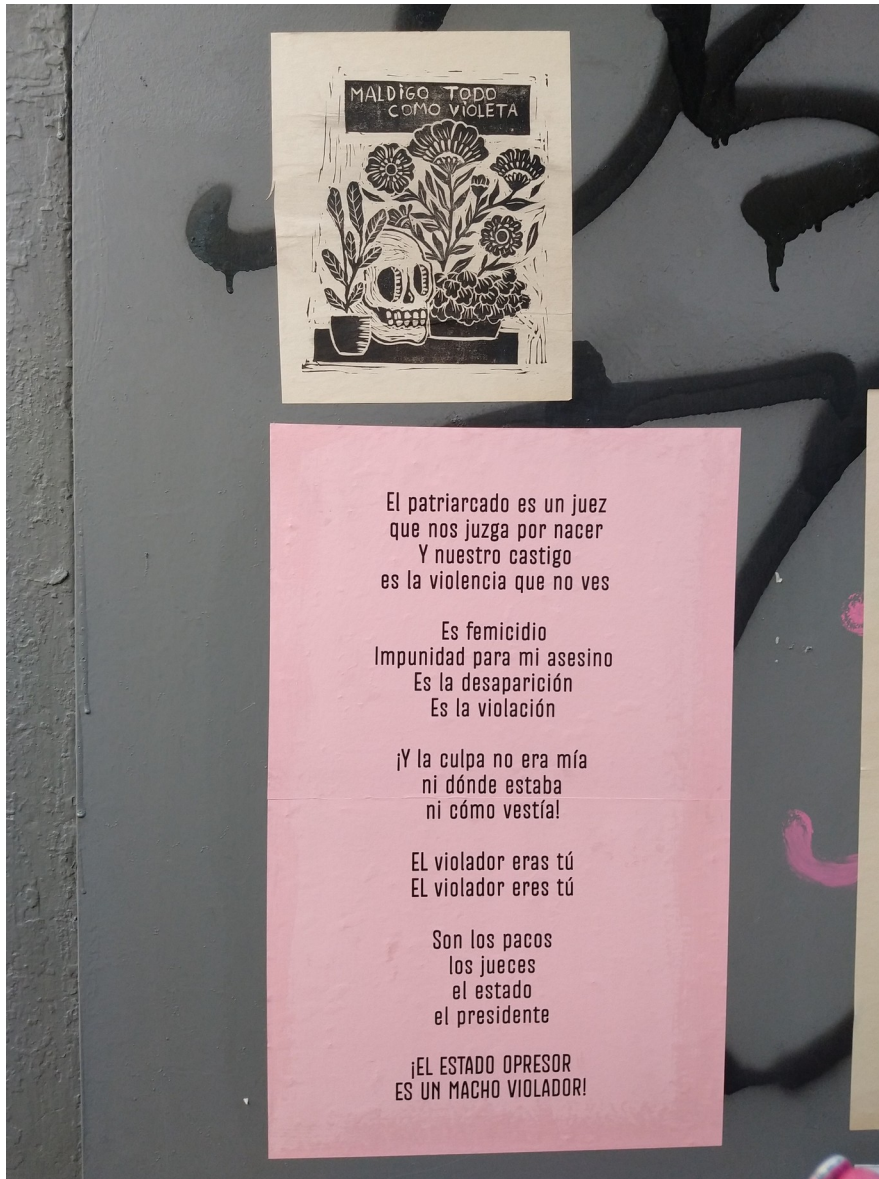 MALDIGO TODO
COMO VIOLETA
El patriarcado es un juez
que nos juzga por nacer
Y nuestro castigo
es la violencia que no ves
Es femicidio
Impunidad para mi asesino
Es la desaparición
Es la violación
¡Y la culpa no era mía
ni dónde estaba
ni cómo vestía!
EL violador eras tú
EL violador eres tú
Son los pacos
los jueces
el estado
el presidente
¡EL ESTADO OPRESOR
ES UN MACHO VIOLADOR!